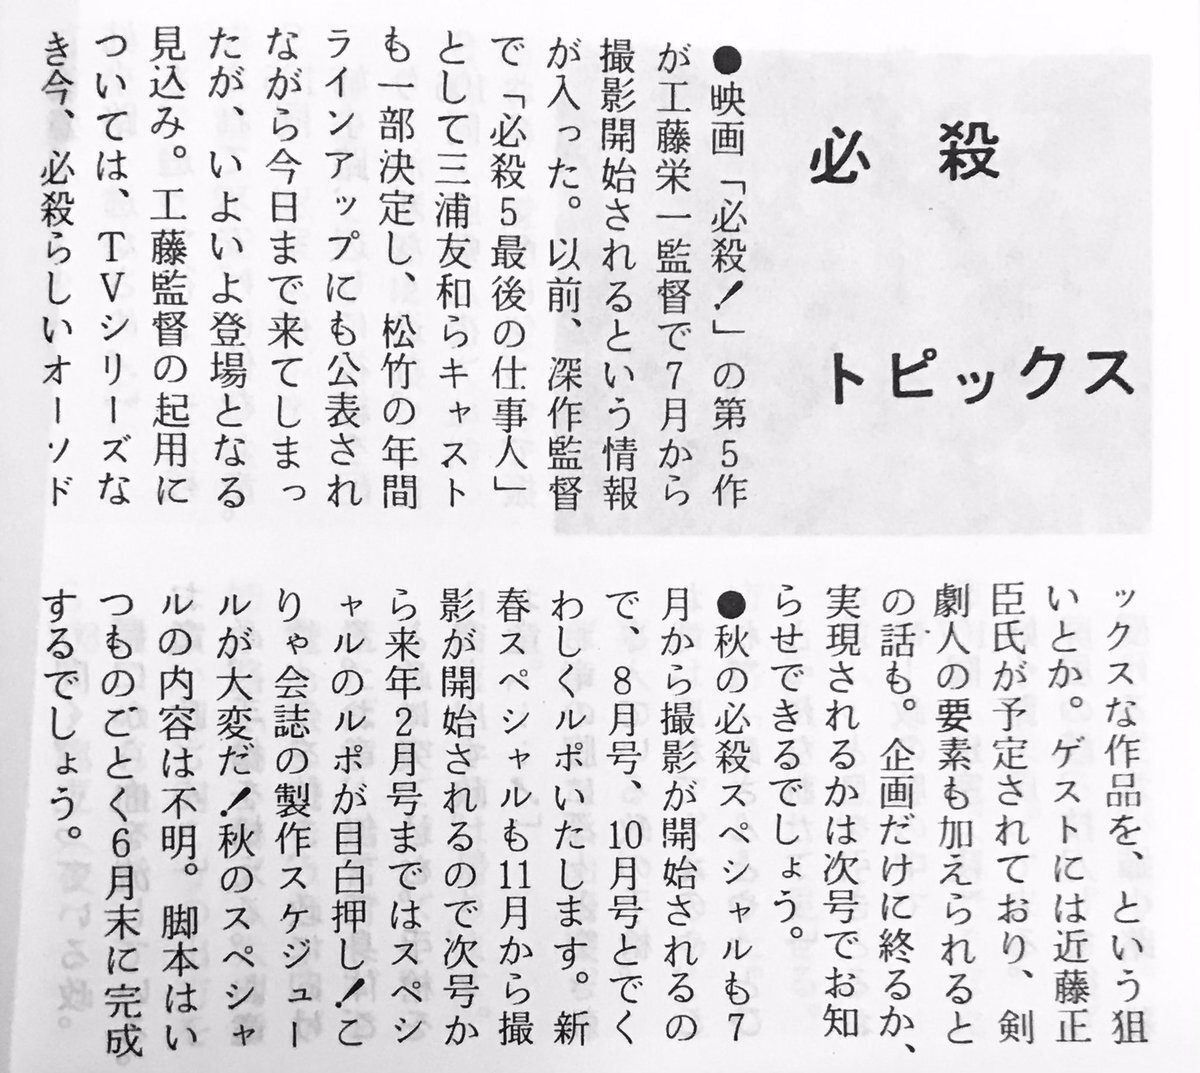 必殺
トピックス
●映画「必殺！」の第5作
が工藤栄一監督で7月から
撮影開始されるという情報
が入った。以前、深作監督
で「必殺5最後の仕事人」
として三浦友和らキャスト
も一部決定し、松竹の年間
ラインアップにも公表され
ながら今日まで来てしまっ
たが、いよいよ登場となる
見込み。工藤監督の起用に
ついては、TVシリーズな
き今、必殺らしいオーソド
ックスな作品を、という狙
いとか。ゲストには近藤正
臣氏が予定されており、剣
劇人の要素も加えられると
の話も。企画だけに終るか、
実現されるかは次号でお知
らせできるでしょう。
●秋の必殺スペシャルも7
月から撮影が開始されるの
で、8月号、10月号とでく
わしくルポいたします。新
春スペシャルも11月から撮
影が開始されるので次号か
ら来年2月号まではスペシ
ャルのルポが目白押し！こ
りゃ会誌の製作スケジュー
ルが大変だ！秋のスペシャ
ルの内容は不明。脚本はい
つものごとく6月末に完成
するでしょう。